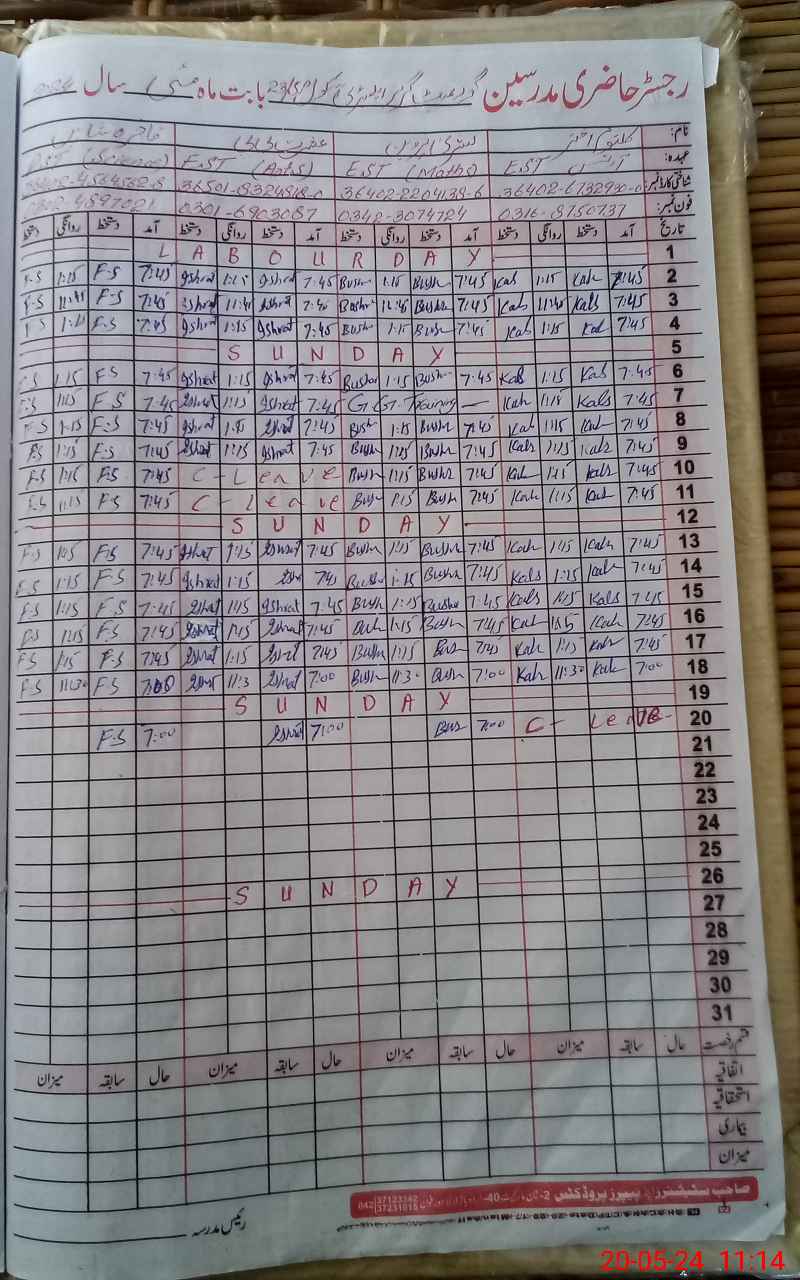 رجسٹر حاضری مدرسین گورنمنٹ گرلز ایلیمنٹری سکول بابت ماہ مئی سال
نام: کلثوم اختر بشریٰ پروین عشرت بی بی
عہدہ: EST آرٹس EST (Maths) EST (Arts) EST (Science)
شناختی کارڈ نمبر: 36402-6732930-0 36402-2204138-6 36501-8324818-0
فون نمبر: 0316-8750737 0342-3074724 0301-6903087 0302-4897021
تاریخ آمد دستخط روانگی دستخط آمد دستخط روانگی دستخط آمد دستخط روانگی دستخط آمد دستخط روانگی دستخط
1 LABOUR DAY
2 7:45 Kals 1:15 Kals 7:45 Bushr 1:15 Bushr 7:45 Ishrat 1:15 Ishrat 7:45 F-S 1:15 F-S
3 7:45 Kals 11:45 Kals 7:45 Bushr 11:45 Bushr 7:45 Ishrat 11:45 Ishrat 7:45 F-S 11:45 F-S
4 7:45 Kal 1:15 Kal 7:45 Bushr 1:15 Bushr 7:45 Ishrat 1:15 Ishrat 7:45 F-S F-S
5 SUNDAY
6 7:45 Kals 1:15 Kals 7:45 Bushr 1:15 Bushra 7:45 Ishrat 1:15 Ishrat 7:45 F-S 1:15 F-S
7 7:45 Kals 1:15 Kals Training 7:45 Ishrat 1:15 Ishrat 7:45 F-S 1:15 F-S
8 7:45 Kals 1:15 Kals 7:45 Bushr 1:15 Bushr 7:45 Ishrat Ishrat 7:45 F-S 1:15 F-S
9 7:45 Kals 1:15 Kals 7:45 Bushr 1:15 Bushr 7:45 Ishrat 1:15 Ishrat 7:45 F-S 1:15 F-S
10 7:45 Kals 1:15 Kals 7:45 Bushr 1:15 Bushr C-Leave 7:45 F-S 1:15 F-S
11 7:45 Kals 1:15 Kals 7:45 Bush 1:15 Bush C-Leave 7:45 F-S 1:15 F-S
12 SUNDAY
13 7:45 Kals 1:15 Kals 7:45 Bushr 1:15 Bushr 7:45 Ishrat 1:15 Ishrat 7:45 F-S 1:15 F-S
14 7:45 Kals 1:15 Kals 7:45 Bushr 1:15 Bushr 7:45 Ishr 1:15 Ishrat 7:45 F-S 1:15 F-S
15 7:45 Kals 1:15 Kals 7:45 Bushr 1:15 Bush 7:45 Ishrat 1:15 Ishrat 7:45 F-S 1:15 F-S
16 7:45 Kals 1:15 Kals 7:45 Bush 1:15 Bush 7:45 Ishrat 1:15 Ishrat 7:45 F-S 1:15 F-S
17 7:45 Kals 1:15 Kals 7:45 Bus 1:15 Bushr 7:45 Ishrat 1:15 Ishrat 7:45 F-S 1:15 F-S
18 7:00 Kals 11:30 Kals 7:00 Bush 11:30 Bushr 7:00 Ishrat 11:3 Ishrat 7:00 F-S 11:30 F-S
19 SUNDAY
20 C-Leave 7:00 Bus 7:00 Ishrat 7:00 F-S
21
22
23
24
25
26 SUNDAY
27
28
29
30
31
قسم رخصت حال سابقہ میزان حال سابقہ میزان حال سابقہ میزان حال سابقہ میزان
اتفاقیہ
استحقاقیہ
بیماری
میزان
صاحب سٹیشنرز اینڈ پیپرز پروڈکٹس 042 37123342 37231015
رئیس مدرسہ
20-05-24 11:14